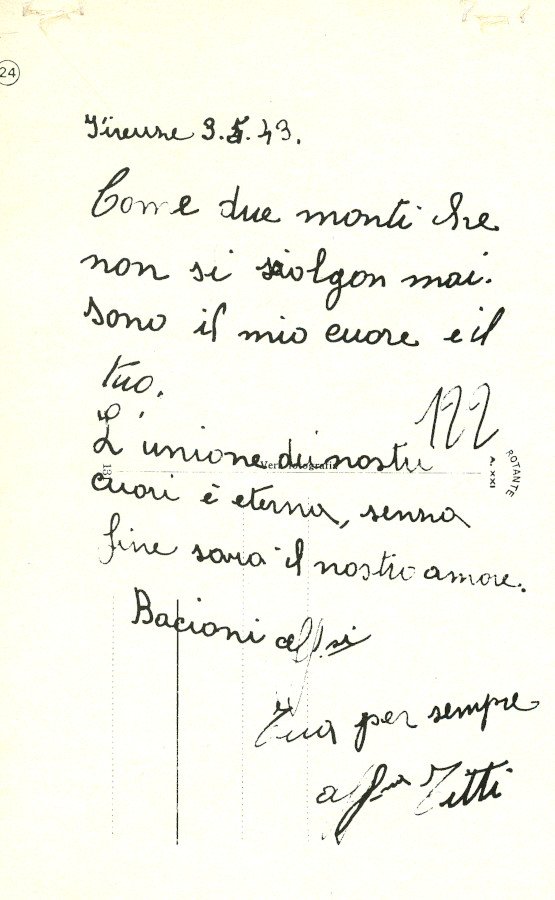 24
Firenze 3.5.43.
Come due monti che
non si sciolgon mai.
Sono il mio cuore e il
tuo.
122
L'unione dei nostri
Vera fotografia
ROTANTE
A. XXI
131
cuori è eterna, senza
fine sarà il nostro amore.
Bacioni aff.si
Tua per sempre
aff.ma Titti